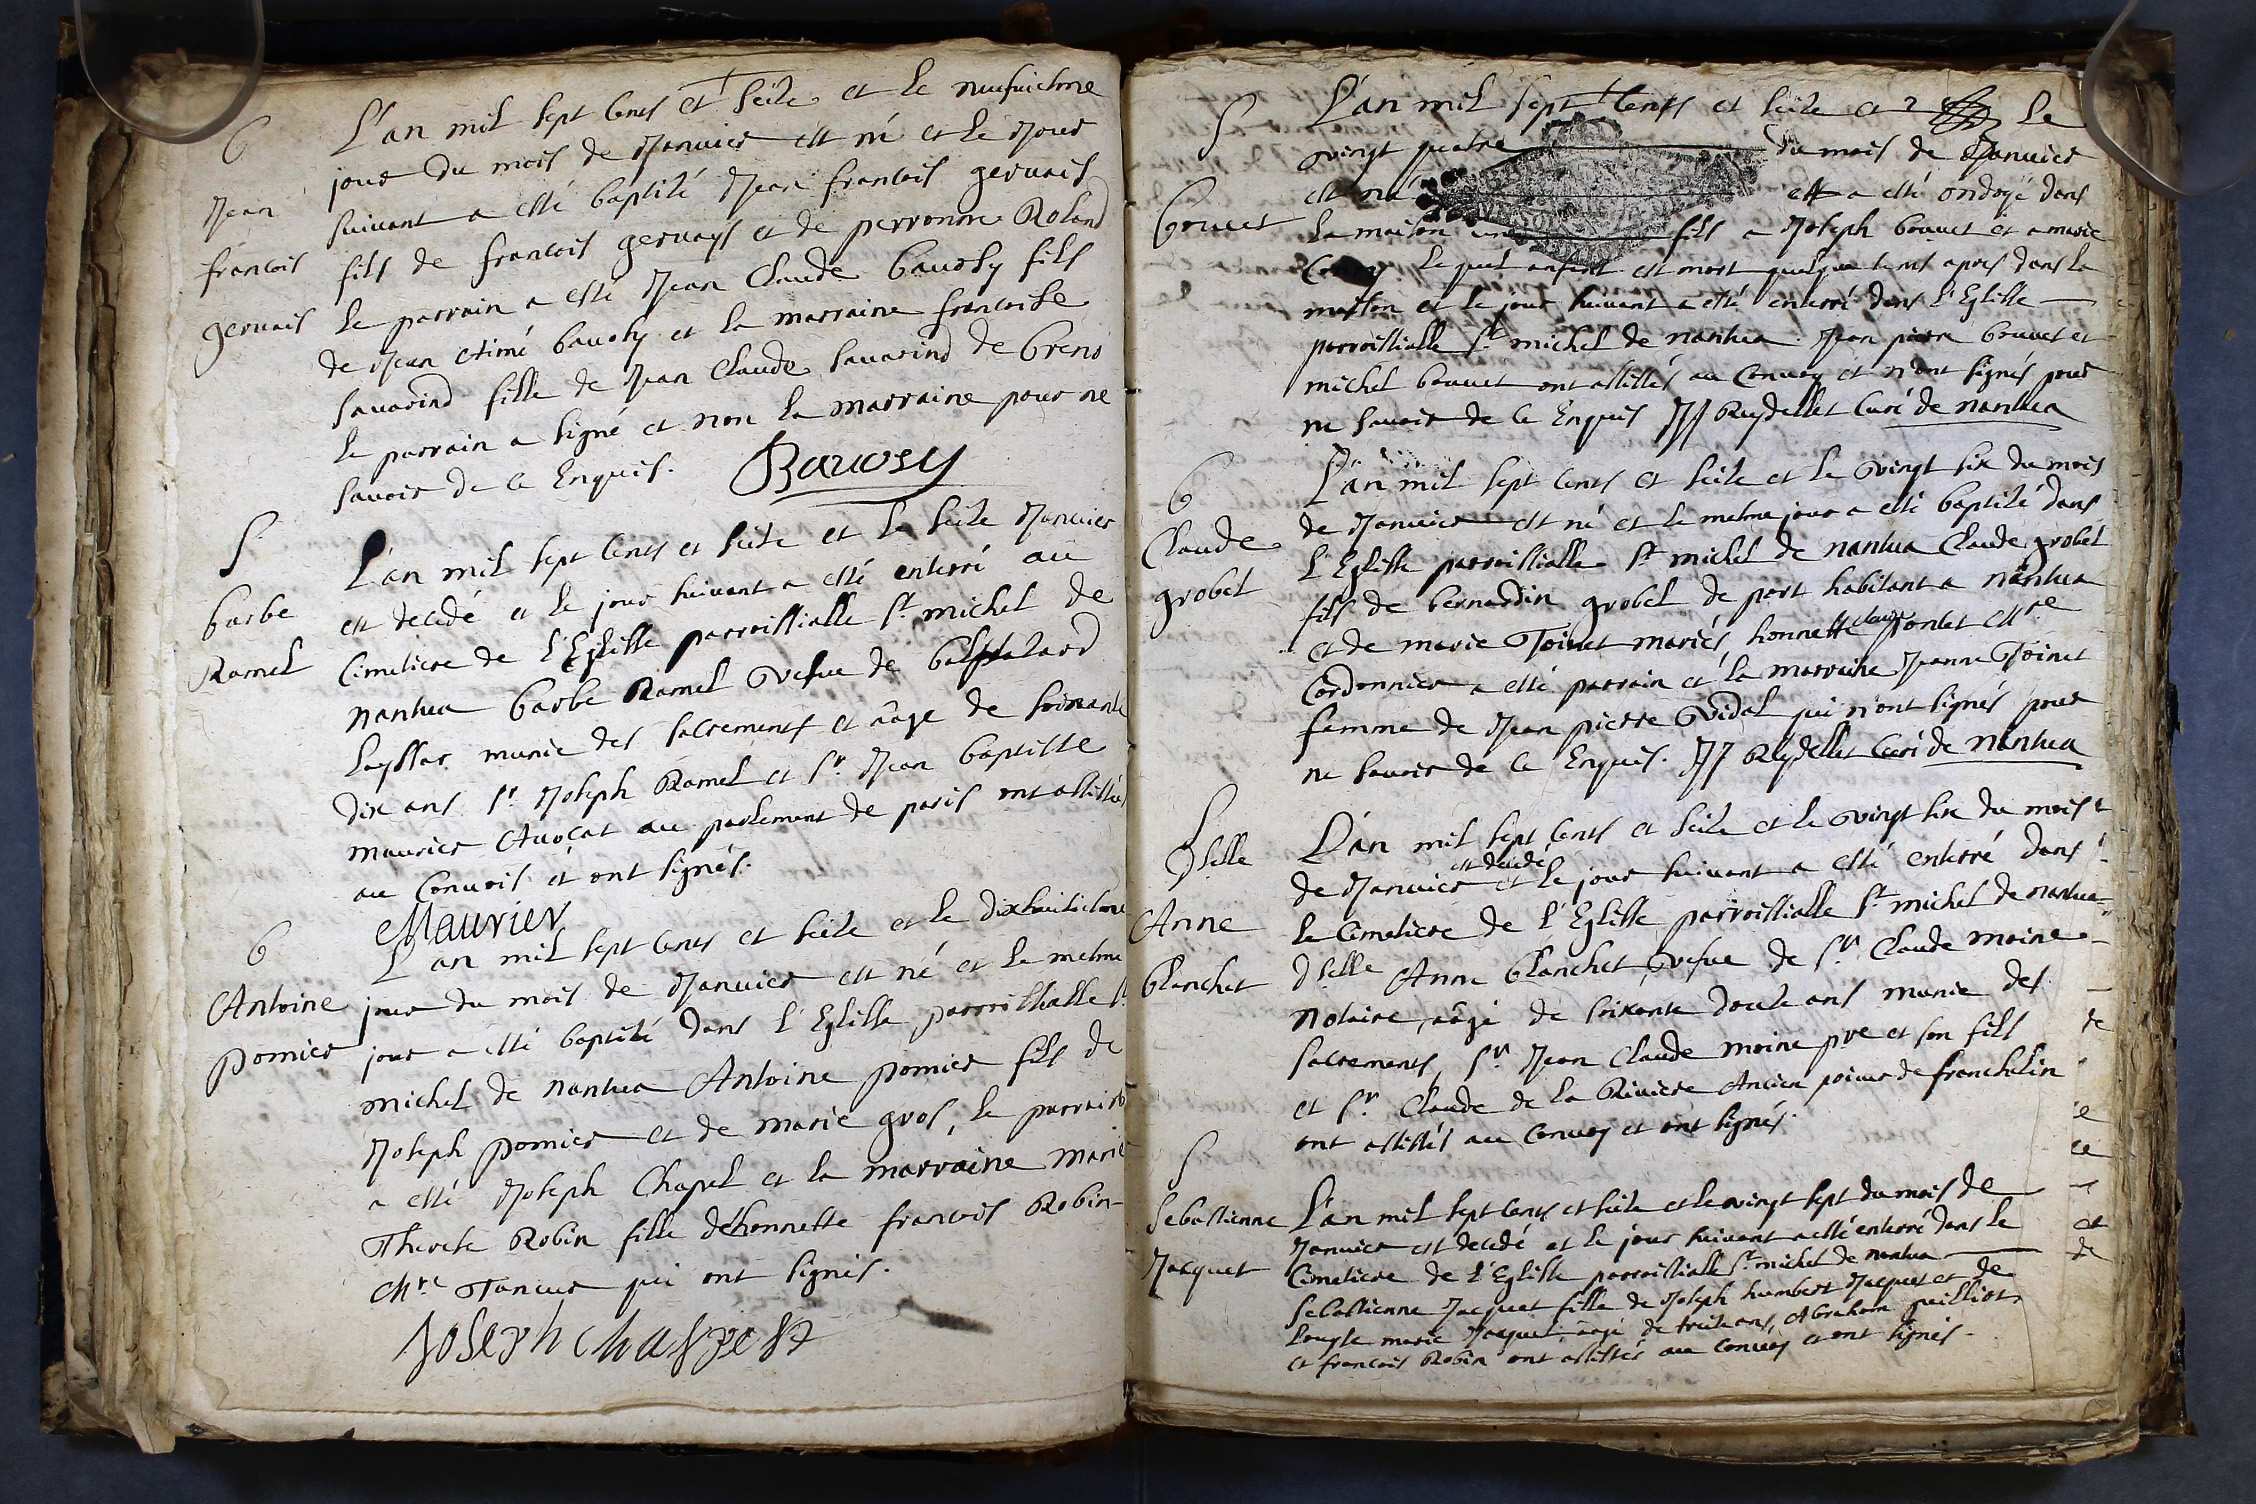 b
Jean
francois
gervais
L'an mil sept cents et seize et le neufuiesme
jour du mois de Januier est né et le Jour
suiuant a esté baptisé Jean francois geruais
fils de francois geruays et de perronne Roland
le parrain a esté Jean Claude bauosy fils
de Jean Aimé bauosy et la marraine francoise
sauarind fille de Jean Claude sauarind de breno
le parrain a signé et non la marraine pour ne
sauoir de ce Enquis. Bauosy
S
barbe
Ramel
L'an mil sept cents et seize et le seize Januier
est decedé et le jour suiuant a esté enterré au
Cimetiere de l'Eglisse parroissialle st michel de
nantua barbe Ramel vefue de
munie des sacrements et aàge de soixante
dix ans sr Joseph Ramel et sr. Jean baptiste
maurier Auocat au parlement de paris ont assistés
au Conuois et ont signés.
Maurier
b
Antoine
pomier
L'an mil sept cents et seize et le dixhuitiesme
jour du mois de Januier est né et le mesme
jour a esté baptisé dans l'Eglisse parroissialle st
michel de nantua Antoine pomier fils de
Joseph pomier et de marie gros, le parrain
a esté Joseph Chapel et la marraine marie
Therese Robin fille d'honneste francois Robin
Mre Taneur qui ont signés.
Joseph
S
bouuet
L'an mil sept cents et seize et le
vingt quatre du mois de Januier
est né a esté ondoyé dans
la maison un fils a Joseph bouuet et a marie
lequel anfant est mort quelque tems apres dans la
maison et le jour suiuant a esté enterré dans l'Eglisse
parroissialle st michel de nantua. Jean pierre bouuet et
michel bouuet ont assistés au Conuoy et n'ont signés pour
ne sauoir de ce Enquis JJ Reydellet Curé de nantua
b
Claude
grobel
L'an mil sept cents et seize et le vingt six du mois
de Januier est né et le mesme jour a esté baptisé dans
l'Eglisse parroissialle st michel de nantua Claude grobel
fils de bernardin grobel de port habitant a nantua
et de marie Toinet mariés, honneste claude pontet Mre
Cordonnier a esté parrain et la marraine Jeanne Toinet
femme de Jean pierre Vidal qui n'ont signés pour
ne sauoir de ce Enquis. JJ Reydellet Curé de nantua
S
Dselle
Anne
blanchet
L'an mil sept cents et seize et le vingt six du mois
de Januier est decedé et le jour suiuant a esté enterré dans
le Cimetiere de l'Eglisse parroissialle st michel de nantua
dselle Anne blanchet vefue de sr Claude moine
notaire, aàgé de soixante douze ans munie des
sacrements, sr Jean Claude moine pre et son fils
et sr. Claude de la Riuiere Ancien prieur de franchelin
ont assistés au Conuoy et ont signés.
S
Sebastienne
Jacquet
L'an mil sept cents et seize et le vingt sept du mois de
Januier est decedé et le jour suiuant a esté enterré dans le
Cimetiere de l'Eglisse parroissialle st michel de nantua
Sebastienne Jacquet fille de Joseph humbert Jacquet et de
marie Jacquet, aàgé de treize ans, Abraham
et francois Robin ont assistés au Conuoy et ont signés.